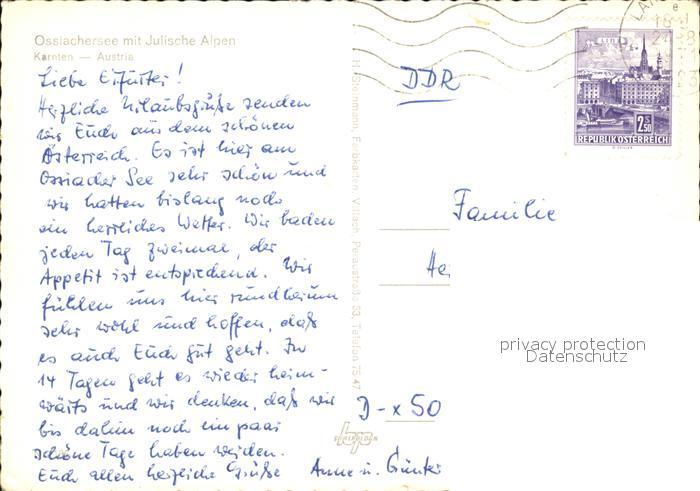 Ossiachersee mit Julische Alpen
Kärnten — Austria
Liebe Erfurter!
Herzliche Urlaubsgrüße senden
wir Euch aus dem schönen
Österreich. Es ist hier am
Ossiacher See sehr schön und
wir hatten bislang noch
ein herrliches Wetter. Wir baden
jeden Tag zweimal, der
Appetit ist entsprechend. Wir
fühlen uns hier rundherum
sehr wohl und hoffen, daß
es auch Euch gut geht. In
14 Tagen geht es wieder heim-
wärts und wir denken, daß wir
bis dahin noch ein paar
schöne Tage haben werden.
Euch allen herzliche Grüße Anne u. Günter
H. Steinmann, Farbkarten, Villach, Peraustraße 33, Telefon 75 47
DDR
LINZ
2 S 50
REPUBLIK ÖSTERREICH
Familie
He
privacy protection
Datenschutz
D-x 50